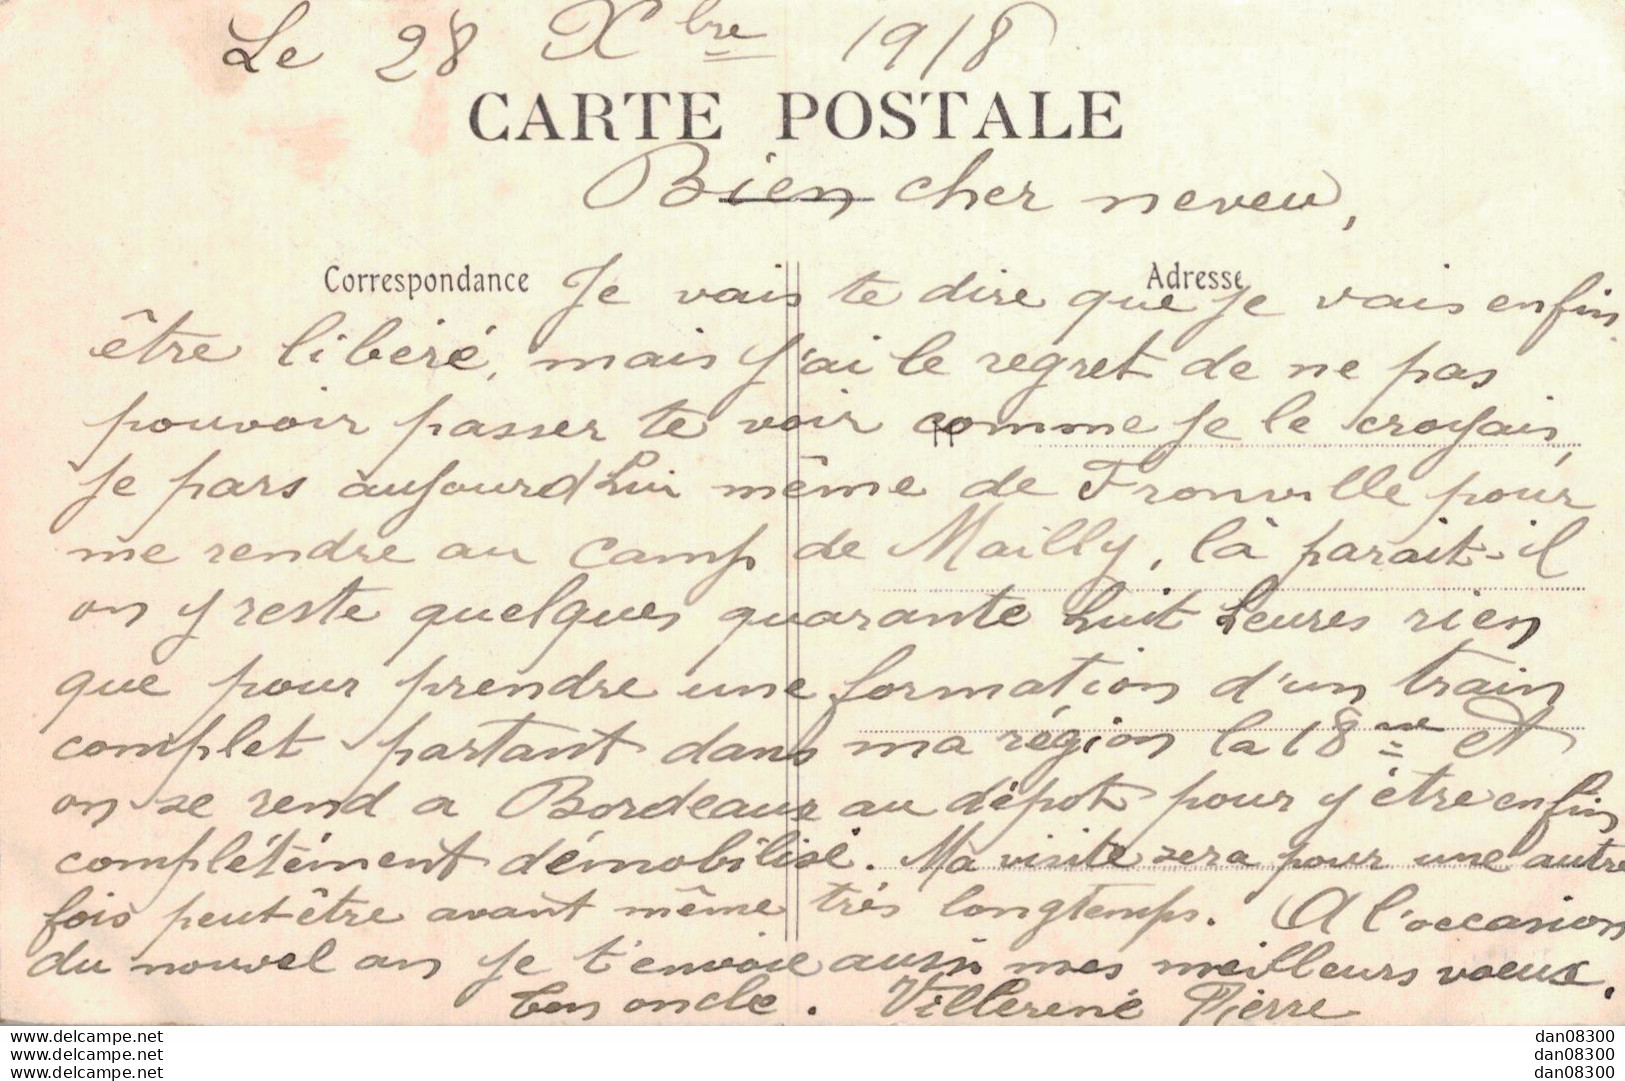 Le 28 Xbre 1918
CARTE POSTALE
Bien cher neveu,
Correspondance
Adresse
Je vais te dire que je vais enfin
être libéré, mais j'ai le regret de ne pas
pouvoir passer te voir comme je le croyais,
je pars aujourd'hui même de Fronville pour
me rendre au camp de Mailly, là parait-il
on y reste quelques quarante huit heures rien
que pour prendre une formation d'un train
complet partant dans ma région la 18me et
on se rend a Bordeaux au dépot pour y être enfin
complétément démobilisé. Ma visite sera pour une autre
fois peut-être avant même très longtemps. A l'occasion
du nouvel an je t'envoie aussi mes meilleurs voeux.
ton oncle. Villerené Pierre
www.delcampe.net
www.delcampe.net
www.delcampe.net
dan08300
dan08300
dan08300